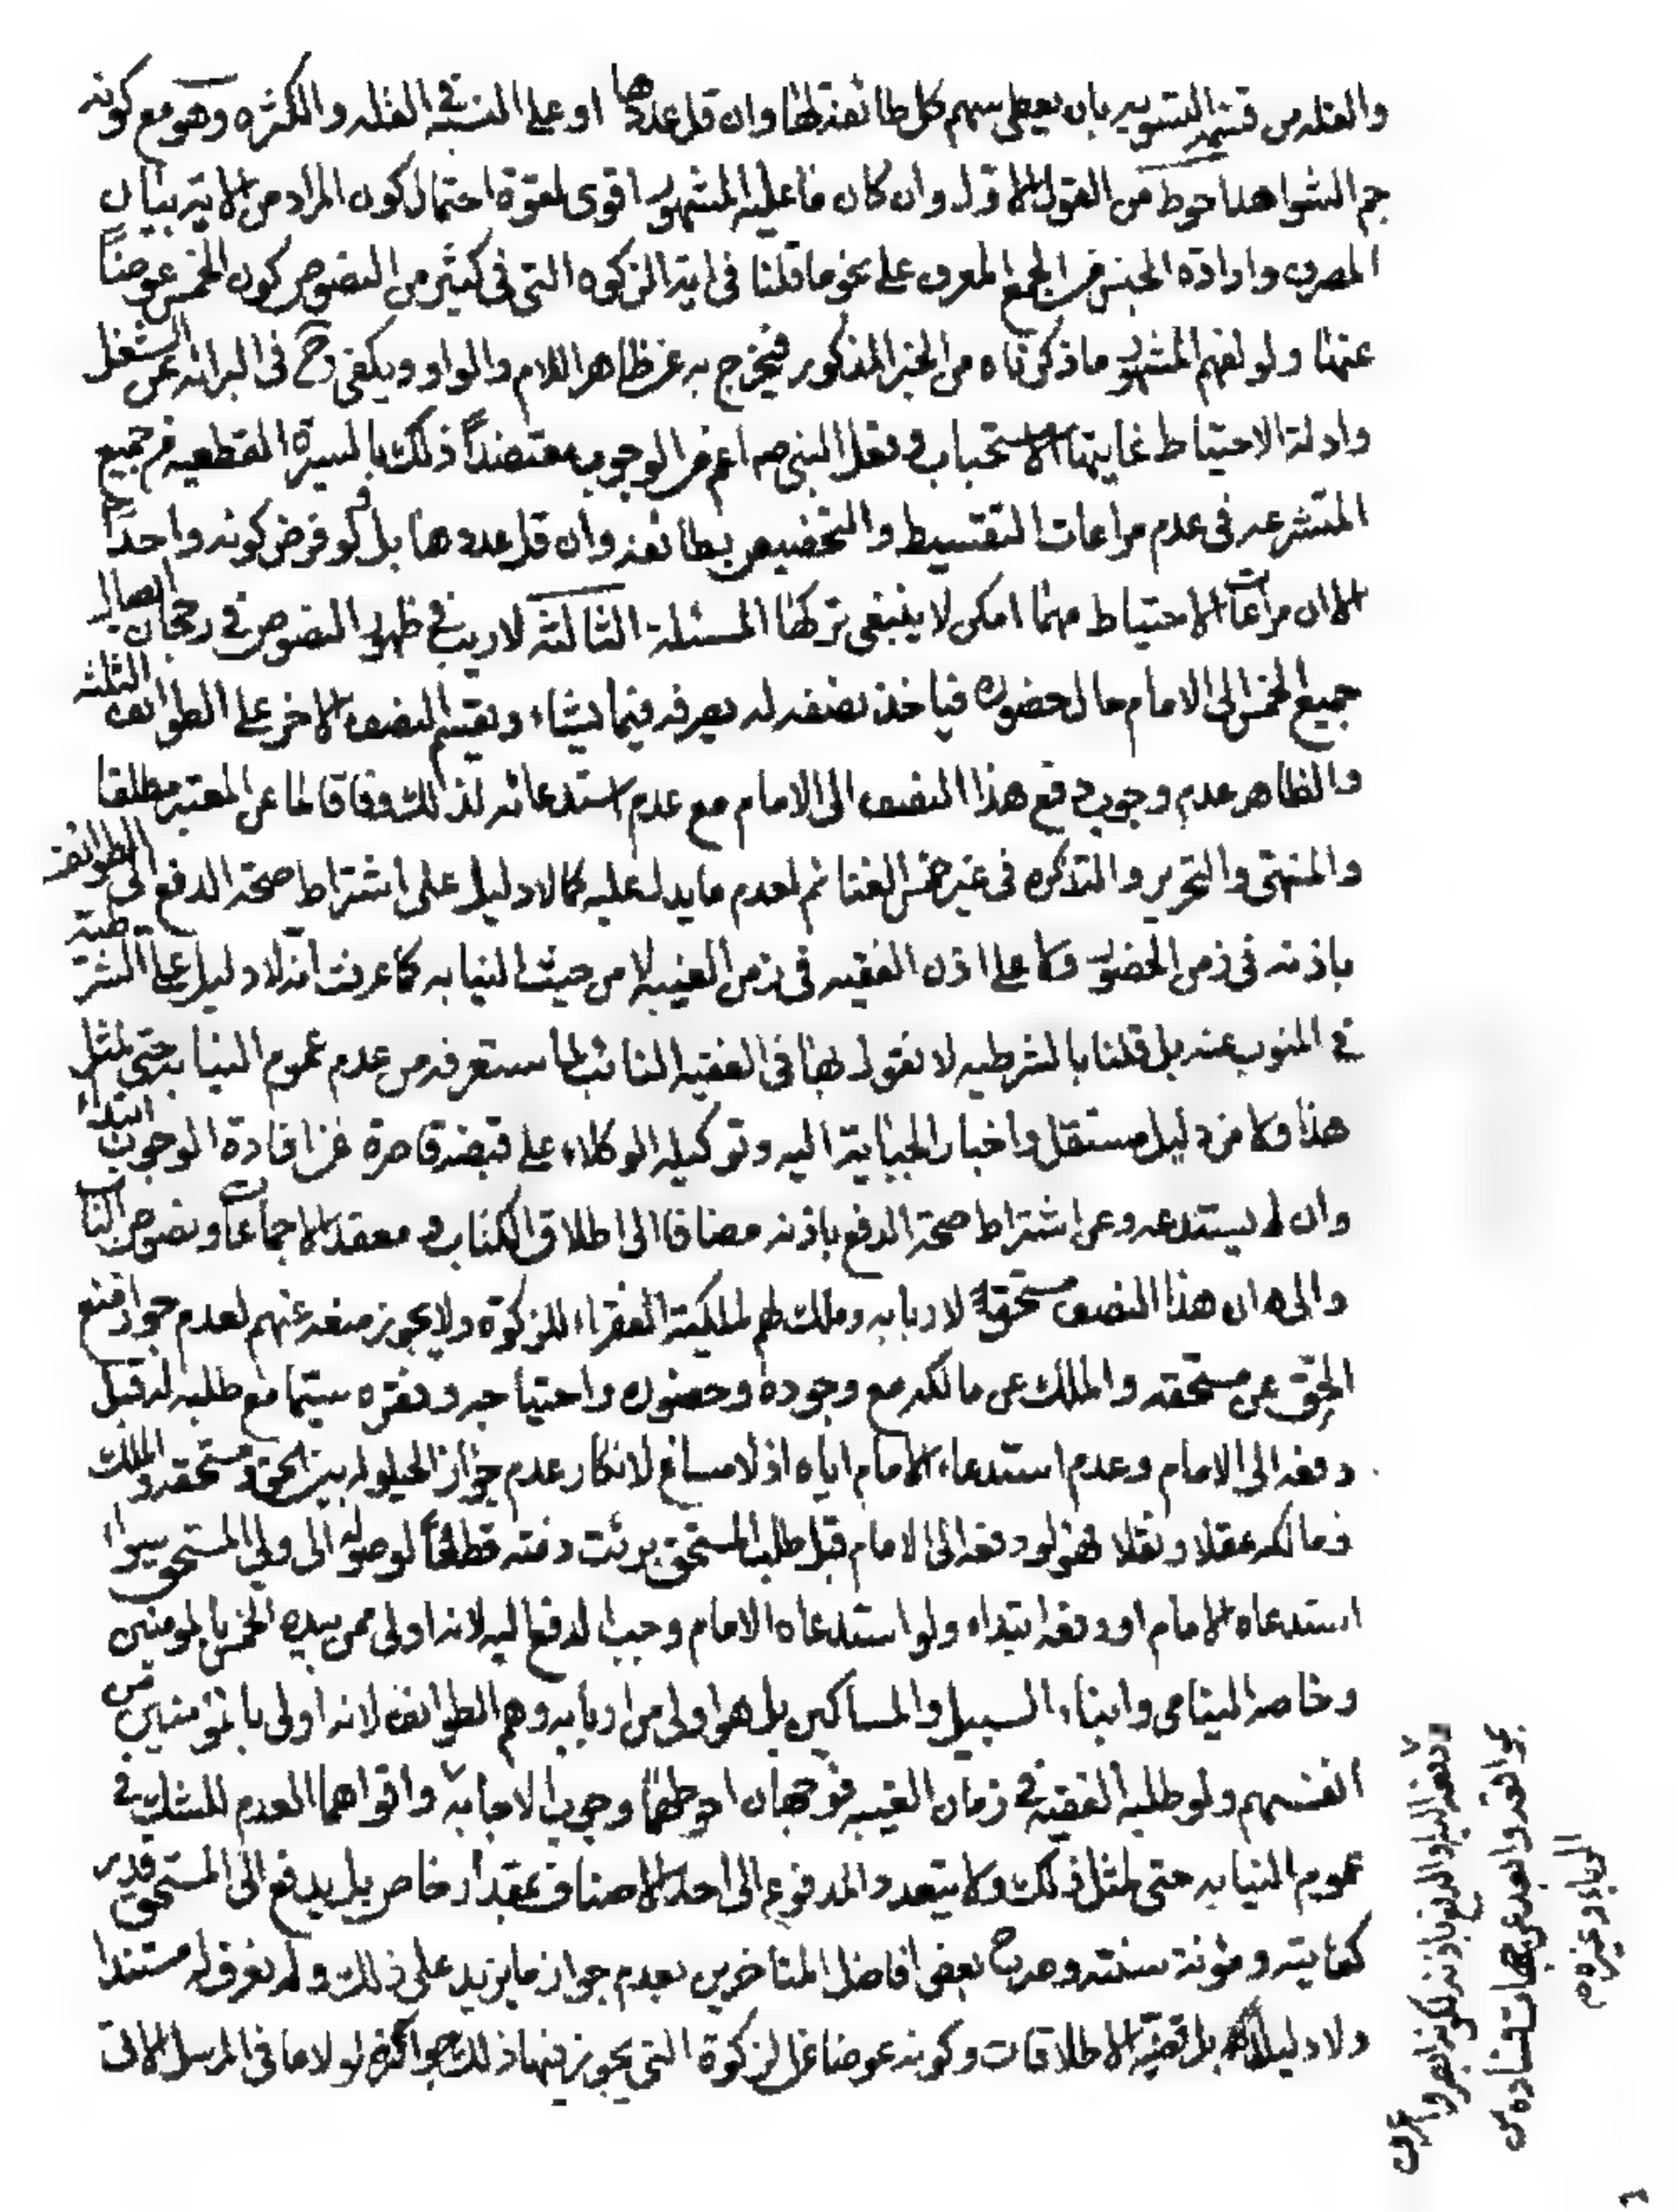 والقلة من قسمة التسوية بان يعطى سهم كل طائفة لها وان قل عددها او على النسبة في القلة والكثرة وهو مع كونه
جم الشواهد احوط من القول الاول وان كان ما عليه المشهور اقوى لقوة احتمال كون المراد من الاية بيان
المصرف وارادة الجنس من الجمع المعرف على نحو ما قلنا في اية الزكوة التي في كثير من النصوص كون الخمس عوضاً
عنها ولو لفهم المشهور ما ذكرناه من الخبر المذكور فيخرج به عن ظاهر اللام والواو ويكفى ح في البرائة عن الشغل
وادلة الاحتياط غايتها الاستحباب وفعل النبي ص اعم من الوجوب معتضداً ذلك بالسيرة القطعية من جميع
المتشرعه في عدم مراعات التقسيط والتخصيص بطائفة وان قل عددها بل لو فرض كونه واحداً
الا ان مراعات الاحتياط مهما امكن لا ينبغى تركها المسئلة الثالثة لا ريب في ظهور النصوص في رجحان ايصال
جميع الخمس الى الامام حال حضوره فياخذ نصفه له يصرفه فيما يشاء ويقسم النصف الاخر على الطوائف الثلثة
والظاهر عدم وجوب دفع هذا النصف الى الامام مع عدم استدعائه لذلك وفاقا لما عن المعتبر مطلقا
والمنتهى والتحرير والتذكره في غير خمس الغنائم لعدم ما يدل عليه كما لا دليل على اشتراط صحة الدفع الى الطوائف
باذنه في زمن الحضور ولا على اذن الفقيه في زمن الغيبة لا من حيث النيابه كما عرفت انه لا دليل على الشرطية
في المنوب عنه بل قلنا بالشرطيه لا نقول بها في الفقيه النائب لما ستعرفه من عدم عموم النيابه حتى لمثل
هذا ولا من دليل مستقل واخبار الجباية اليه وتوكيله الوكلاء على قبضه قاصرة عن افادة الوجوب ابتداء
وان لم يستدعه وعن اشتراط صحة الدفع باذنه مضافا الى اطلاق الكتاب ومعقد الاجماعات ونصوص الباب
والى ان هذا النصف مستحق لاربابه وملك لهم كملكية الفقراء للزكوة ولا يجوز منعه عنهم لعدم جواز منع
الحق عن مستحقه والملك عن مالكه مع وجوده وحضوره واحتياجه وفقره سيما مع طلبه له قبل
دفعه الى الامام وعدم استدعاء الامام اياه اذ لا مساغ لانكار عدم جواز الحيلوله بين الحق ومستحقه والملك
ومالكه عقلا ونقلا فهو لو دفعه الى الامام قبل طلب المستحق برئت ذمته قطعاً لوصوله الى ولي المستحق سواء
استدعاه الامام او دفعه ابتداء ولو استدعاه الامام وجب الدفع اليه لانه اولى ممن بيده الخمس بالمومنين
وخاصه اليتامى وابناء السبيل والمساكين بل هو اولى من اربابه وهم الطوائف لانه اولى بالمؤمنين من
انفسهم ولو طلبه الفقيه في زمان الغيبه فوجهان احوطهما وجوب الاجابه واقواهما العدم للشك في
عموم النيابه حتى لمثل ذلك ولا يتعدد المدفوع الى احد الاصناف بمقدار خاص بل يدفع الى المستحق قدر
كفايته ومؤنة سنته وصرح بعض افاضل المتاخرين بعدم جواز ما يزيد على ذلك ولم نعرف له مستندا
ولا دليلا بل قضية الاطلاقات وكونه عوضا عن الزكوة التي يجوز فيها ذلك جوازه لولا ما في المرسل الاتى
دفعه اليه والدفع باذنه لكونه ابصر واعرف
بمواقعه وابعد عن جهات فساده من
الرياء وغيره م